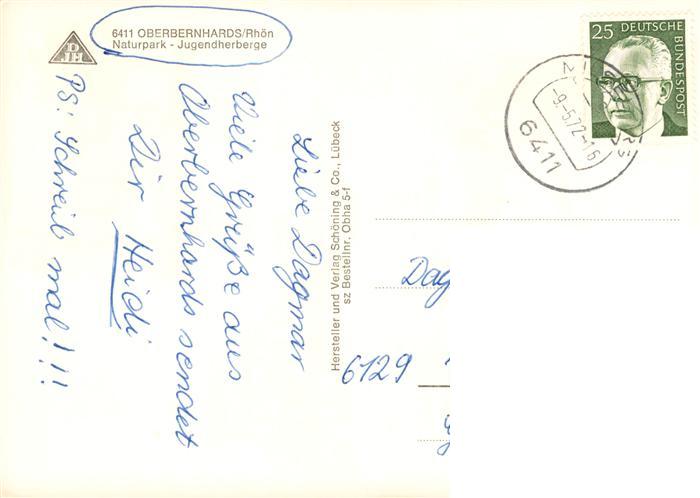 6411 OBERBERNHARDS/Rhön
Naturpark - Jugendherberge
DJH
Liebe Dagmar
Viele Grüße aus
Oberbernhards sendet
Dir Heidi
PS: Schreib mal!!!
Hersteller und Verlag Schöning & Co., Lübeck
sz Bestellnr. Obha 5-f
25 DEUTSCHE
BUNDESPOST
-9-5.72-16
6411
Dag
6129